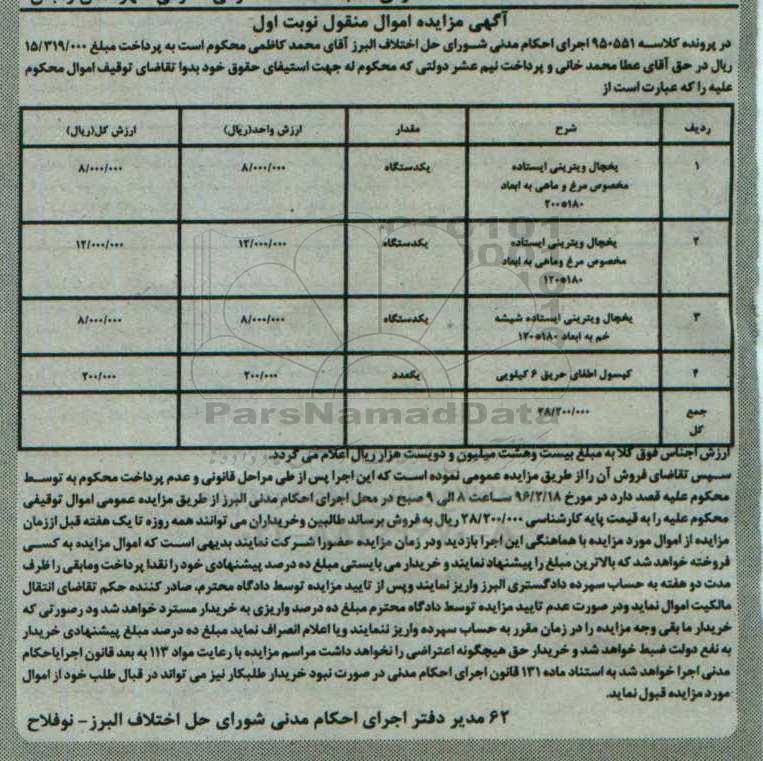 آگهی مزایده اموال منقول نوبت اول
در پرونده کلاسه ۹۵۰۵۵۱ اجرای احکام مدنی شورای حل اختلاف البرز آقای محمد کاظمی محکوم است به پرداخت مبلغ ۱۵/۳۱۹/۰۰۰
ریال در حق آقای عطا محمد خانی و پرداخت نیم عشر دولتی که محکوم له جهت استیفای حقوق خود بدوا تقاضای توقیف اموال محکوم
علیه را که عبارت است از
ردیف شرح مقدار ارزش واحد(ریال) ارزش کل(ریال)
۱ یخچال ویترینی ایستاده یکدستگاه ۸/۰۰۰/۰۰۰ ۸/۰۰۰/۰۰۰
مخصوص مرغ و ماهی به ابعاد
۲۰۰*۱۸۰
۲ یخچال ویترینی ایستاده یکدستگاه ۱۲/۰۰۰/۰۰۰ ۱۲/۰۰۰/۰۰۰
مخصوص مرغ وماهی به ابعاد
۱۲۰*۱۸۰
۳ یخچال ویترینی ایستاده شیشه یکدستگاه ۸/۰۰۰/۰۰۰ ۸/۰۰۰/۰۰۰
خم به ابعاد ۱۸۰*۱۲۰
۴ کپسول اطفای حریق ۶ کیلویی یکعدد ۲۰۰/۰۰۰ ۲۰۰/۰۰۰
جمع ۲۸/۲۰۰/۰۰۰
کل
ParsNamadData
ارزش اجناس فوق کلا به مبلغ بیست وهشت میلیون و دویست هزار ریال اعلام می گردد.
سپس تقاضای فروش آن را از طریق مزایده عمومی نموده است که این اجرا پس از طی مراحل قانونی و عدم پرداخت محکوم به توسط
محکوم علیه قصد دارد در مورخ ۹۶/۲/۱۸ ساعت ۸ الی ۹ صبح در محل اجرای احکام مدنی البرز از طریق مزایده عمومی اموال توقیفی
محکوم علیه را به قیمت پایه کارشناسی ۲۸/۲۰۰/۰۰۰ ریال به فروش برساند طالبین وخریداران می توانند همه روزه تا یک هفته قبل اززمان
مزایده از اموال مورد مزایده با هماهنگی این اجرا بازدید ودر زمان مزایده حضورا شرکت نمایند بدیهی است که اموال مزایده به کسی
فروخته خواهد شد که بالاترین مبلغ را پیشنهاد نمایند و خریدار می بایستی مبلغ ده درصد پیشنهادی خود را نقدا پرداخت ومابقی را ظرف
مدت دو هفته به حساب سپرده دادگستری البرز واریز نمایند وپس از تایید مزایده توسط دادگاه محترم، صادر کننده حکم تقاضای انتقال
مالکیت اموال نماید ودر صورت عدم تایید مزایده توسط دادگاه محترم مبلغ ده درصد واریزی به خریدار مسترد خواهد شد ودر رصورتی که
خریدار ما بقی وجه مزایده را در زمان مقرر به حساب سپرده واریز ننمایند ویا اعلام انصراف نماید مبلغ ده درصد مبلغ پیشنهادی خریدار
به نفع دولت ضبط خواهد شد و خریدار حق هیچگونه اعتراضی را نخواهد داشت مراسم مزایده با رعایت مواد ۱۱۳ به بعد قانون اجرایاحکام
مدنی اجرا خواهد شد به استناد ماده ۱۳۱ قانون اجرای احکام مدنی در صورت نبود خریدار طلبکار نیز می تواند در قبال طلب خود از اموال
مورد مزایده قبول نماید.
۶۲ مدیر دفتر اجرای احکام مدنی شورای حل اختلاف البرز - نوفلاح